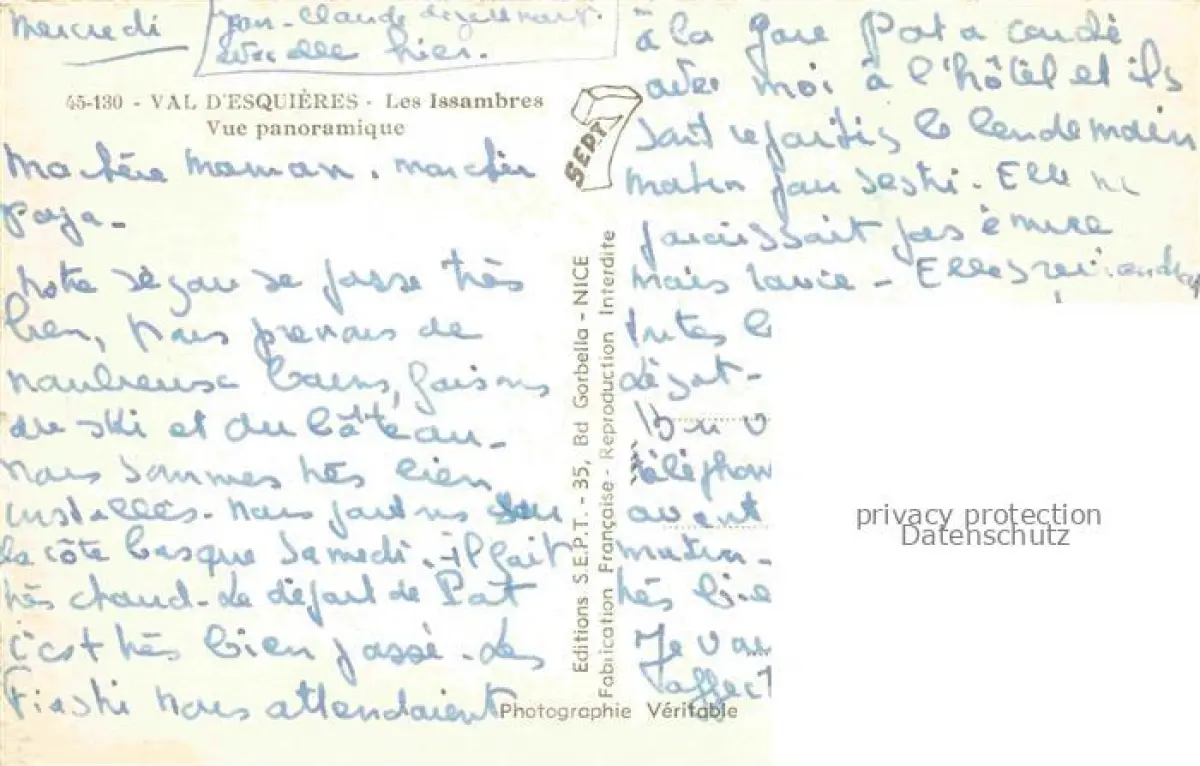 Mercredi
Jean-Claude
avec elle hier.
45-130 - VAL D'ESQUIÈRES - Les Issambres
Vue panoramique
Ma chère Maman. mon cher
papa.
notre séjour se passe très
bien, nous prenons de
nombreux bains, faisons
du ski et du bâteau.
nous sommes très bien
installés. nous partons sur
la côte basque samedi. il fait
très chaud. Le départ de Pat
c'est très bien passé. Les
nous attendaient
à la gare Pat a couché
avec moi à l'hôtel et ils
sont repartis le lendemain
matin pour Sestri. Elle ne
paraissait pas émue
mais ravie. Elle
toutes le
départ.
téléphon
avant
matin.
très bie
Je vou
affect
SEPT
Editions S.E.P.T. - 35, Bd Gorbella - NICE
Fabrication Française - Reproduction Interdite
Photographie Véritable
privacy protection
Datenschutz